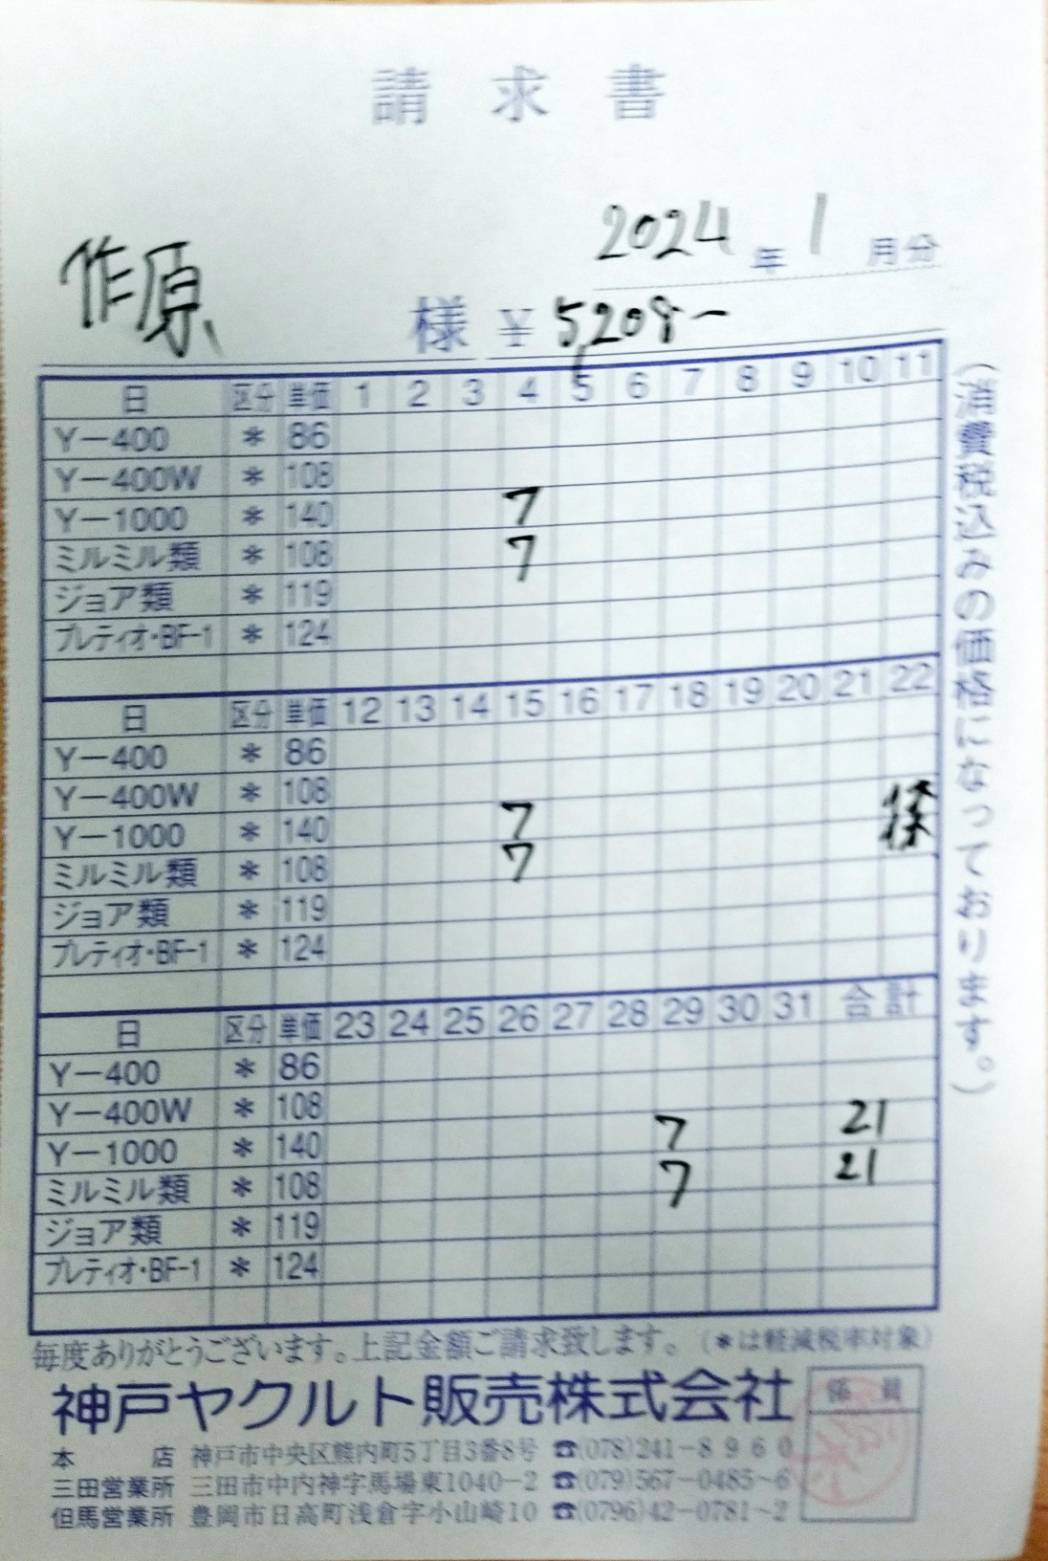 請求書
2024年1月分
作原様 ¥5208-
日 区分 単価 1 2 3 4 5 6 7 8 9 10 11
Y-400 * 86
Y-400W * 108
Y-1000 * 140 7
ミルミル類 * 108 7
ジョア類 * 119
プレティオ・BF-1 * 124
日 区分 単価 12 13 14 15 16 17 18 19 20 21 22
Y-400 * 86
Y-400W * 108
Y-1000 * 140 7
ミルミル類 * 108 7
ジョア類 * 119
プレティオ・BF-1 * 124
日 区分 単価 23 24 25 26 27 28 29 30 31 合計
Y-400 * 86
Y-400W * 108
Y-1000 * 140 7 21
ミルミル類 * 108 7 21
ジョア類 * 119
プレティオ・BF-1 * 124
(消費税込みの価格になっております。)
毎度ありがとうございます。上記金額ご請求致します。(*は軽減税率対象)
神戸ヤクルト販売株式会社
係員
本店 神戸市中央区熊内町5丁目3番8号 ☎(078)241-8960
三田営業所 三田市中内神字馬場東1040-2 ☎(079)567-0485~6
但馬営業所 豊岡市日高町浅倉字小山崎10 ☎(0796)42-0781~2